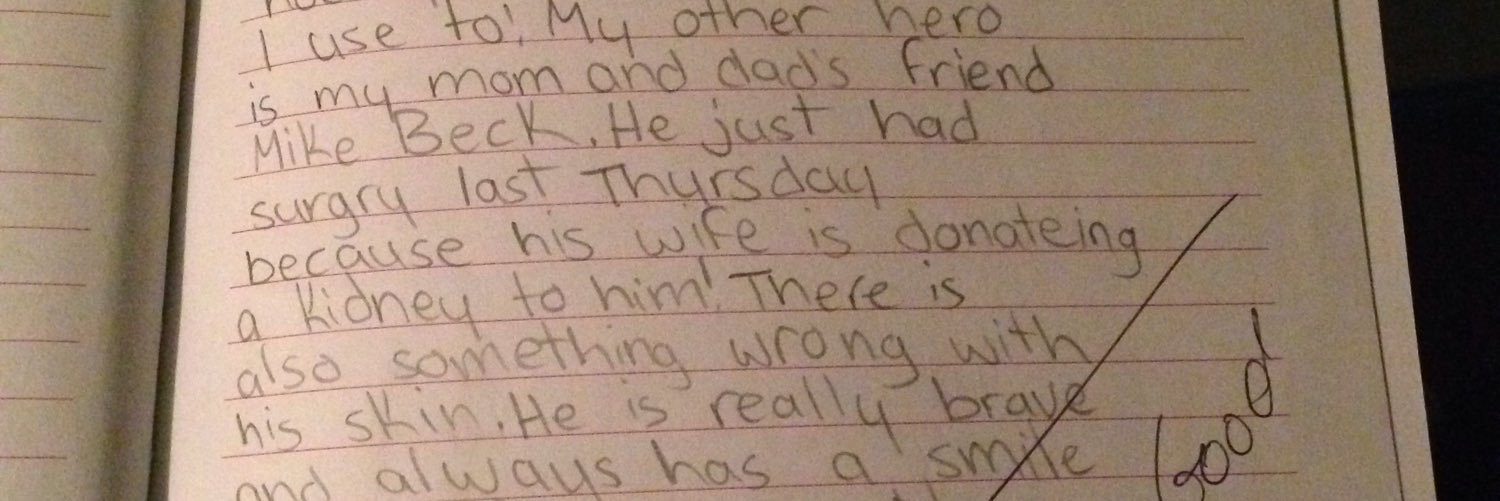 I use to! My other hero
is my mom and dad's friend
Mike Beck. He just had
surgry last Thyrsday
because his wife is donateing
a kidney to him! There is
also something wrong with
his skin. He is really brave
and always has a smile
Good